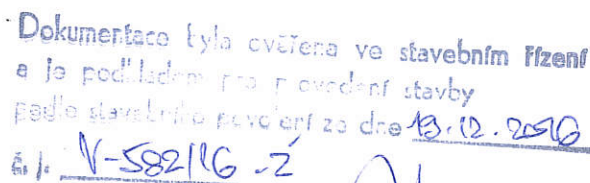 Dokumentace byla ověřena ve stavebním řízení
a je podkladem pro provedení stavby
podle stavebního povolení ze dne 19.12.2016
č. j. V-582/16-Ž